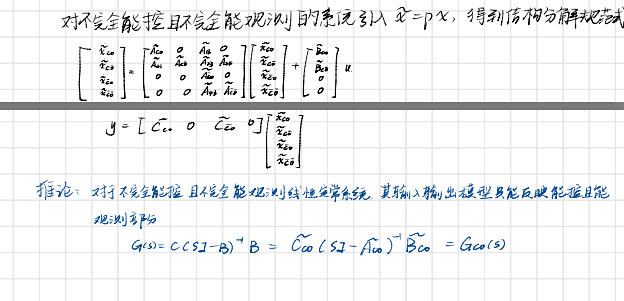 对不完全能控且不完全能观测的系统引入 x̃=px, 得到结构分解规范式
[x̃co x̃cō x̃c̄o x̃c̄ō] = [Ãco 0 Ã13 0
Ã21 Ãcō Ã23 Ã24
0 0 Ãc̄o 0
0 0 Ã43 Ãc̄ō] [x̃co x̃cō x̃c̄o x̃c̄ō] + [B̃co B̃cō 0 0] u
y = [C̃co 0 C̃c̄o 0] [x̃co x̃cō x̃c̄o x̃c̄ō]
推论: 对于不完全能控且不完全能观测线性定常系统, 其输入输出模型只能反映能控且能
观测部分
G(s)= C(SI-B)⁻¹B = C̃co (SI-Ãco)⁻¹ B̃co = Gco(s)